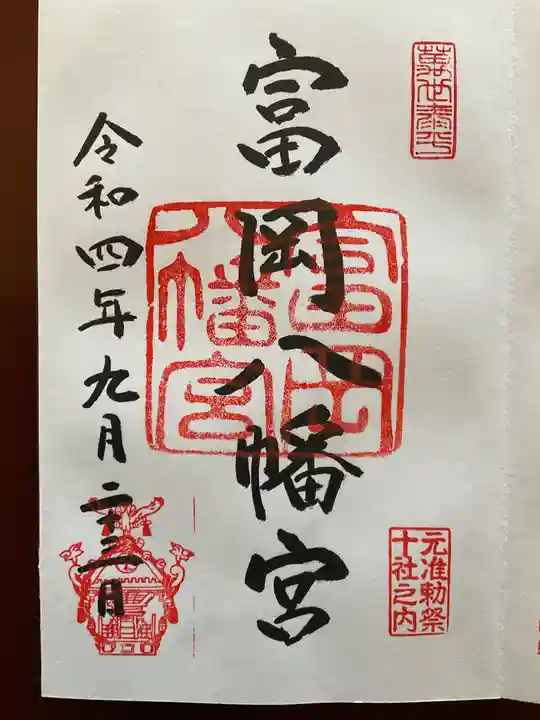 萬世泰平
富岡八幡宮
富岡八幡宮
元准勅祭
十社之内
令和四年九月二十三日